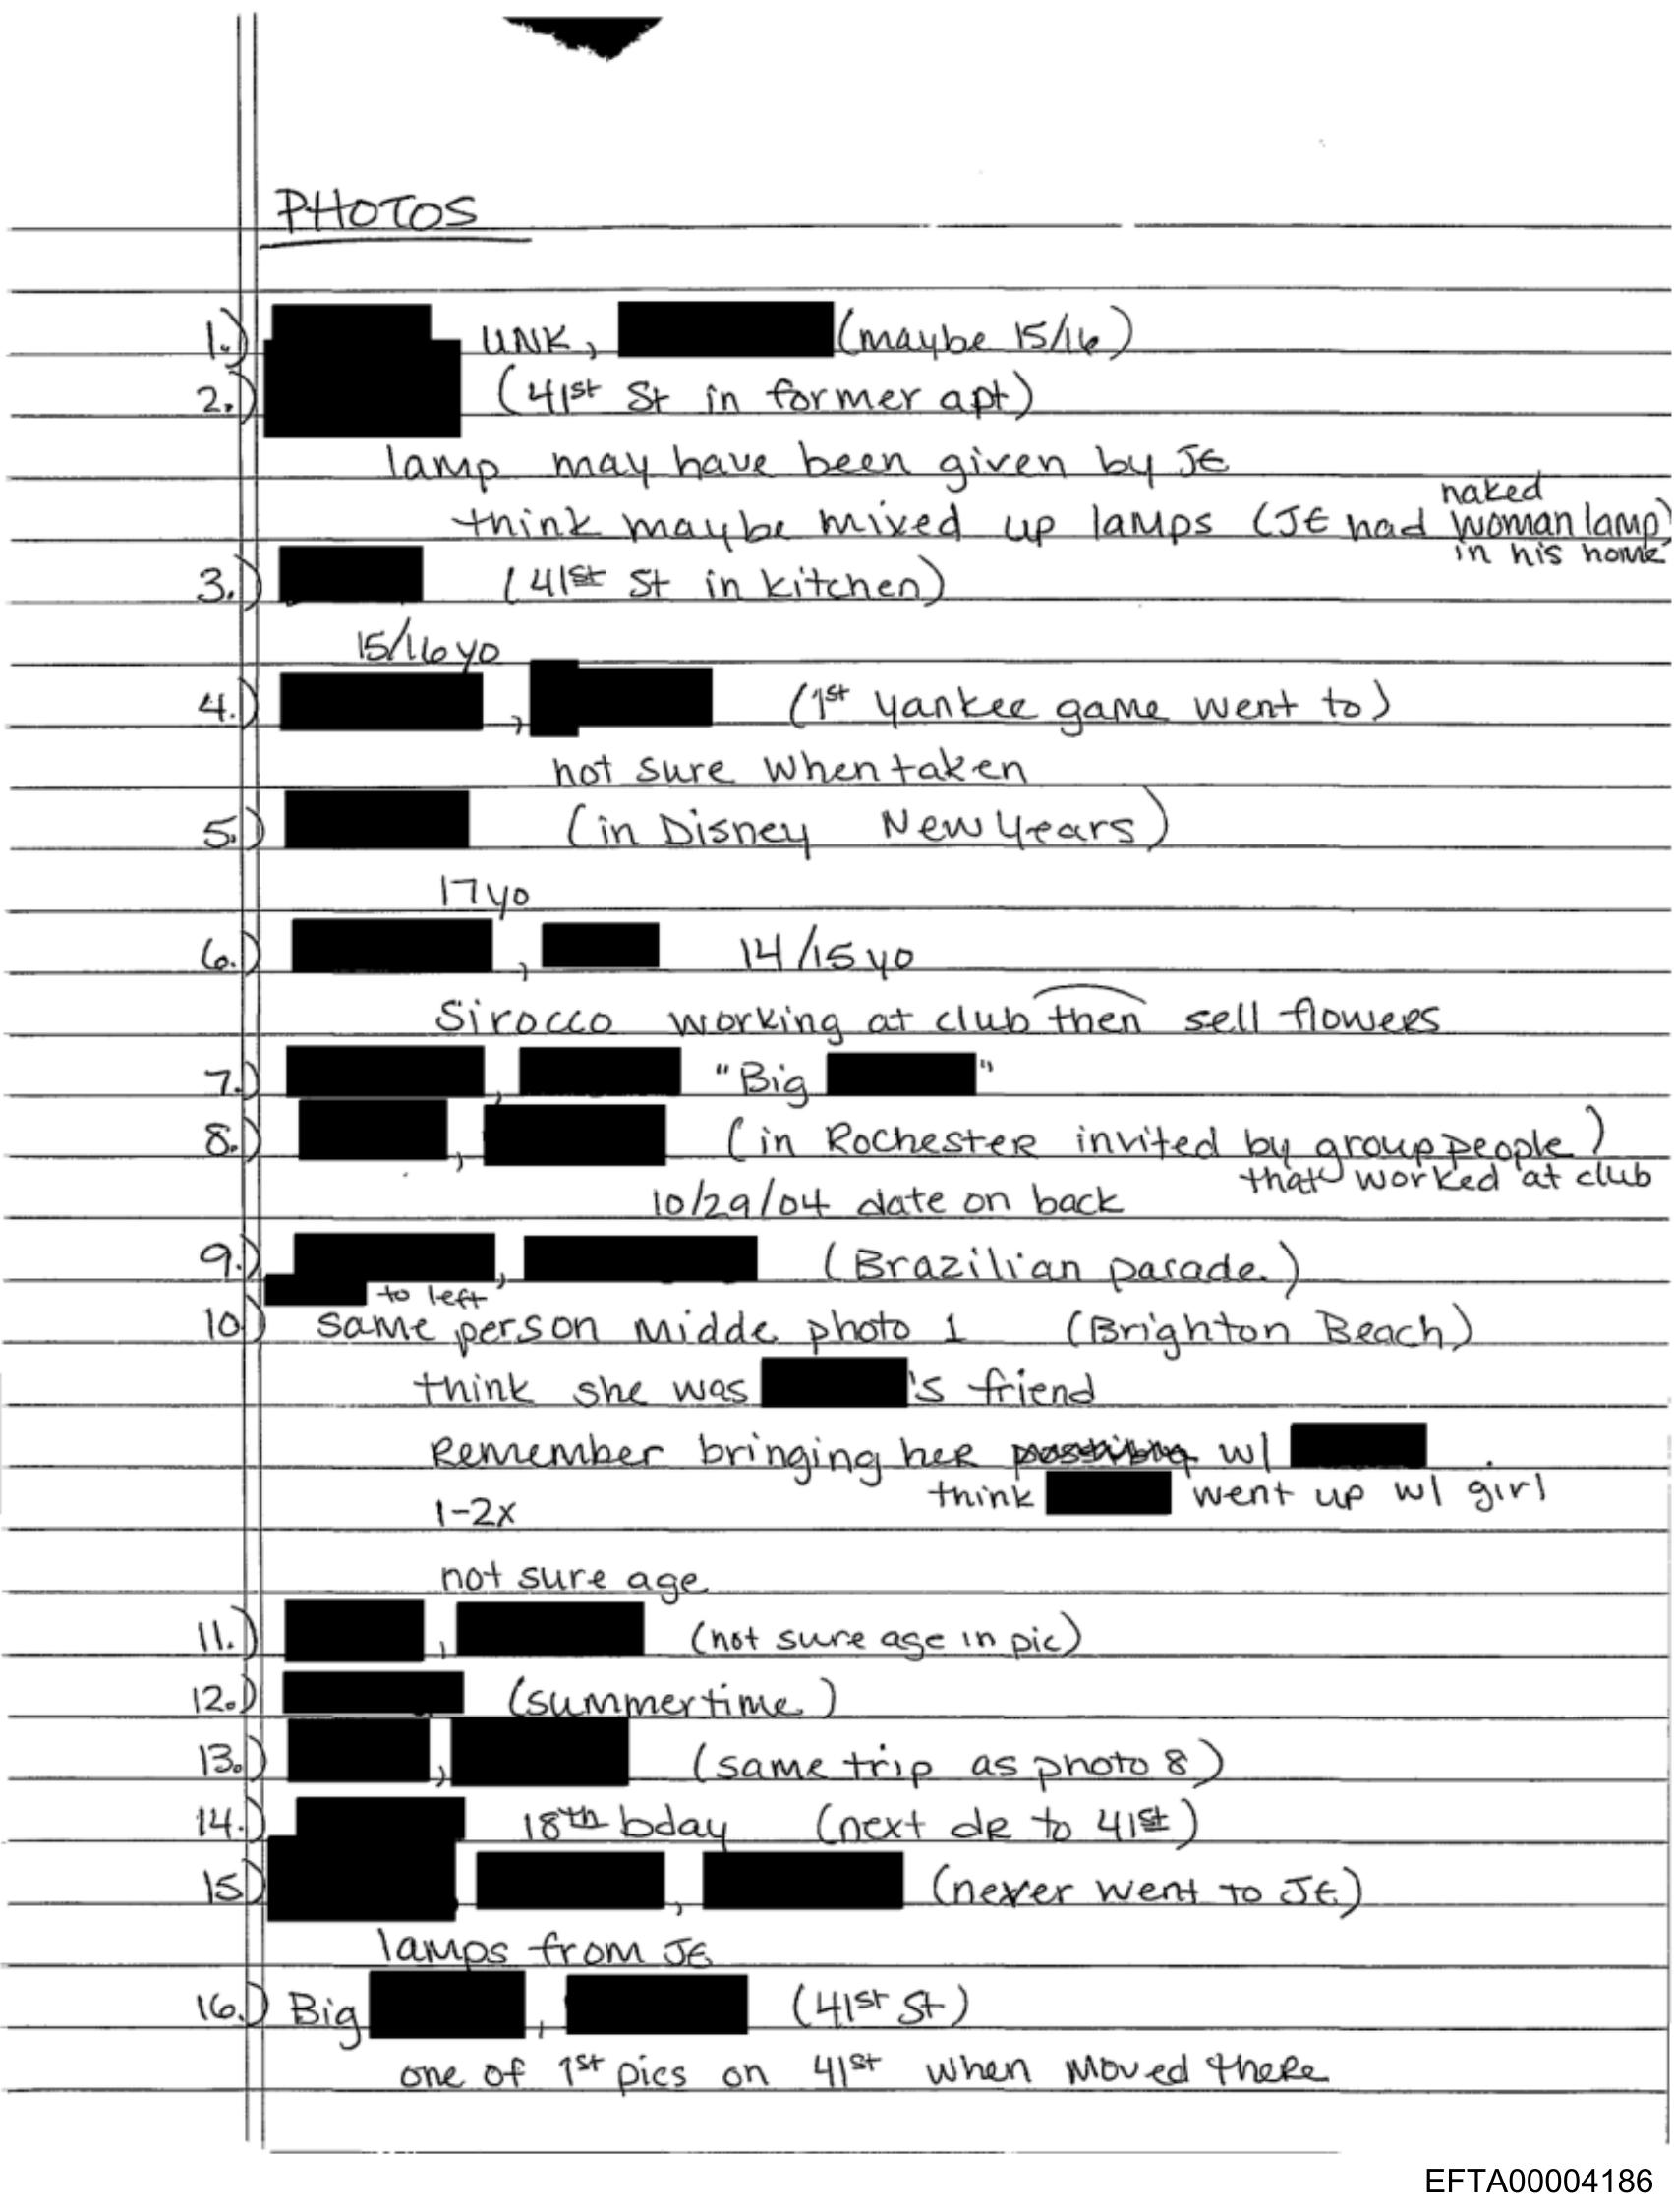 PHOTOS
1.) UNK, (maybe 15/16)
2.) (41st St in former apt)
lamp may have been given by JE
naked
think maybe mixed up lamps (JE had woman lamp)
in his home
3.) (41st St in kitchen)
15/16 yo
4.) , (1st Yankee game went to)
not sure when taken
5.) (in Disney New Years)
17 yo
6.) , 14/15 yo
Sirocco working at club then sell flowers
7.) , "Big "
8.) , (in Rochester invited by group people)
that worked at club
10/29/04 date on back
9.) , (Brazilian parade)
to left
10) same person midde photo 1 (Brighton Beach)
think she was 's friend
Remember bringing her possibly w/ .
think went up w/ girl
1-2x
not sure age
11.) , (not sure age in pic)
12.) (summertime)
13.) , (same trip as photo 8)
14.) 18th bday (next dr to 41st)
15) , (never went to JE)
lamps from JE
16.) Big , (41st St)
one of 1st pics on 41st when moved there
EFTA00004186